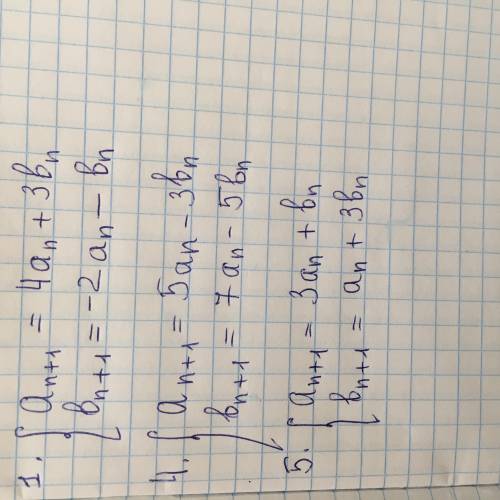 1. { a_{n+1} = 4a_n + 3b_n
b_{n+1} = -2a_n - b_n
4. { a_{n+1} = 5a_n - 3b_n
b_{n+1} = 7a_n - 5b_n
5. { a_{n+1} = 3a_n + b_n
b_{n+1} = a_n + 3b_n